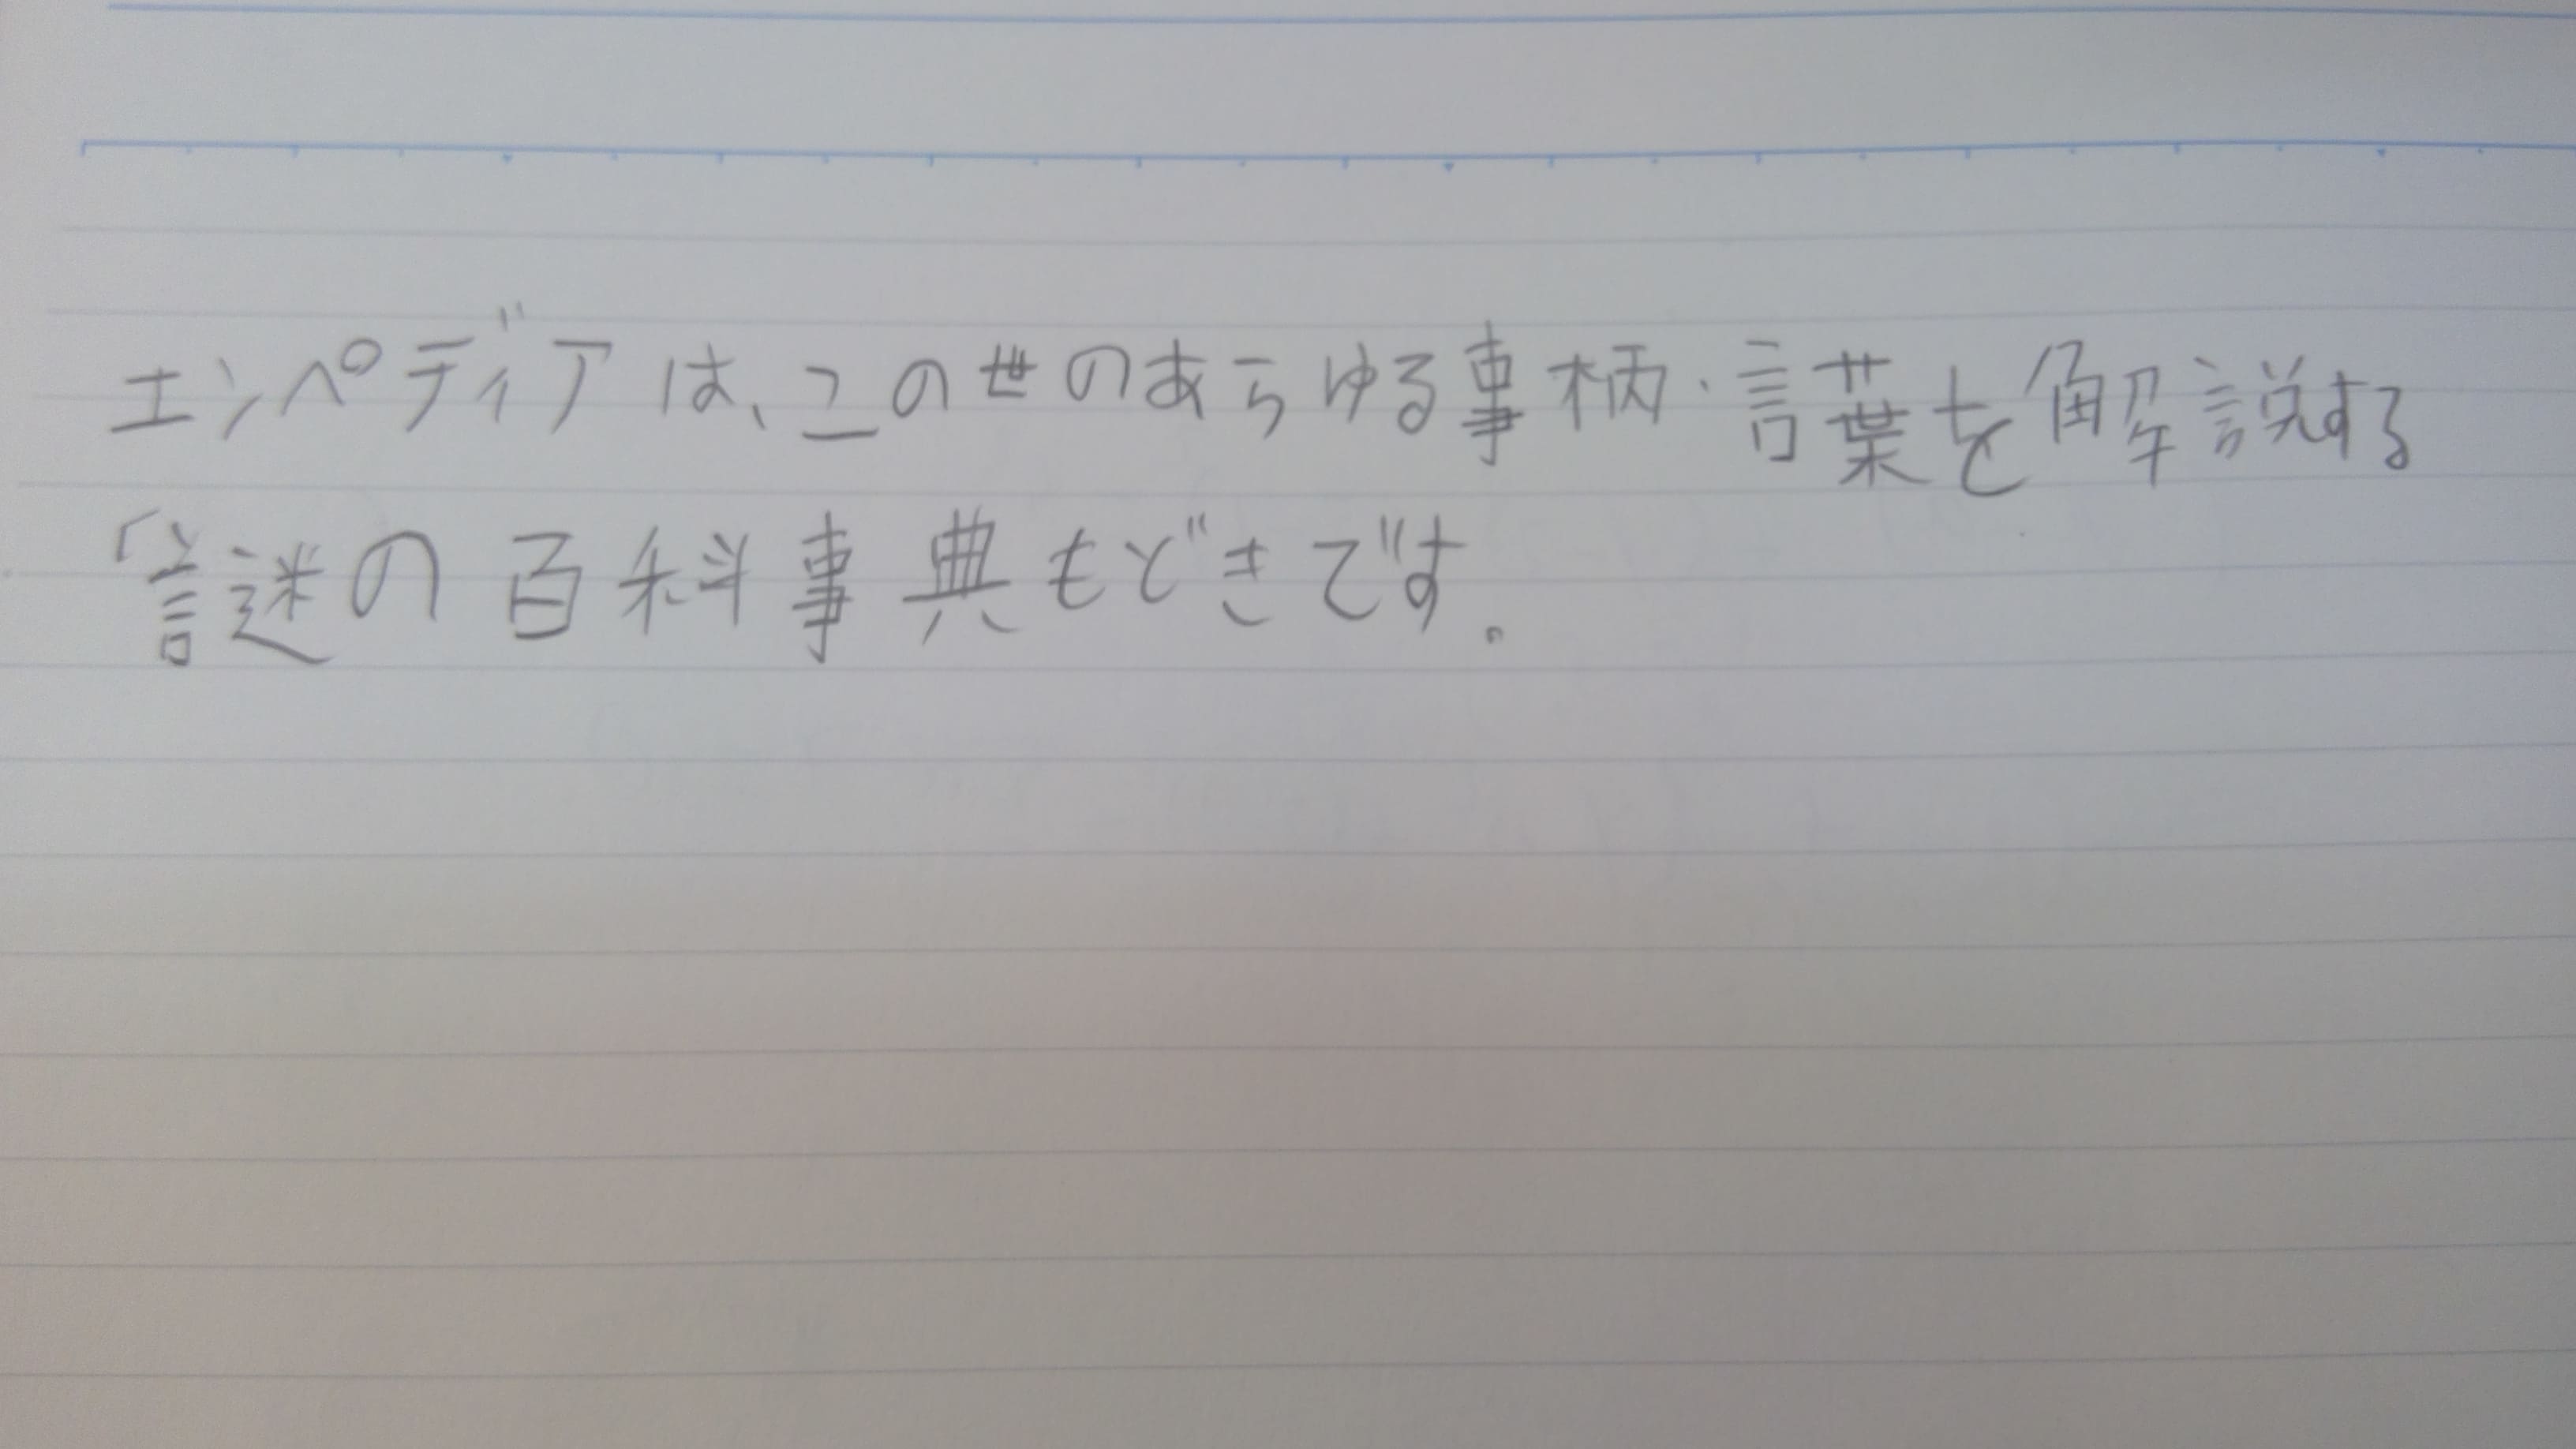 エンペディアは、この世のあらゆる事柄・言葉を解説する
謎の百科事典もどきです。